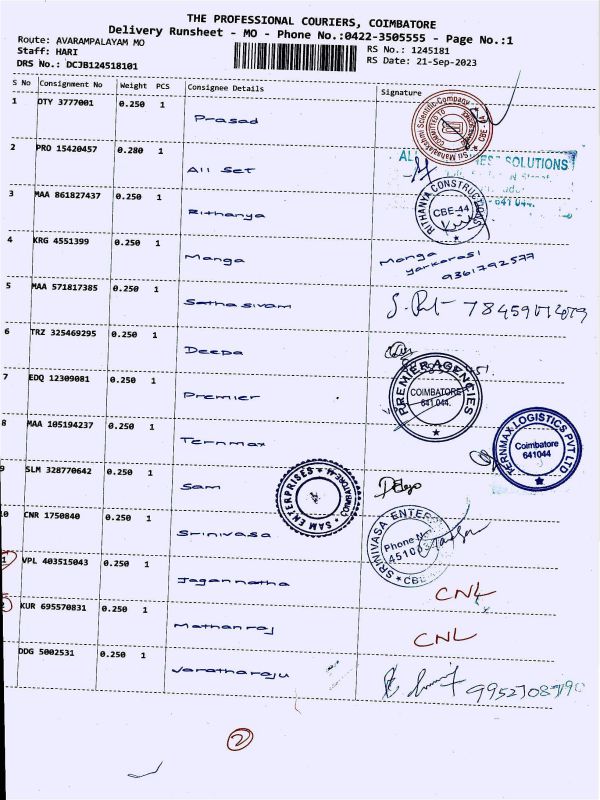 THE PROFESSIONAL COURIERS, COIMBATORE
Delivery Runsheet - MO - Phone No.:0422-3505555 - Page No.:1
Route: AVARAMPALAYAM MO
RS No.: 1245181
Staff: HARI
RS Date: 21-Sep-2023
DRS No.: DCJB124518101
S No Consignment No Weight PCS Consignee Details Signature
1 DTY 3777001 0.250 1
Prasad
Sri Mahalakshmi Scientific Company
COMMITTED TO
2 PRO 15420457 0.280 1
All Set
SOLUTIONS
641 044.
3 MAA 861827437 0.250 1
Rithanya
RITHANYA CONSTRUCTIONS
CBE-44
4 KRG 4551399 0.250 1
Manga
Manga
yarkarasi
9361792577
5 MAA 571817385 0.250 1
Sathasivam
6 TRZ 325469295 0.250 1
Deepa
7 EDQ 12309081 0.250 1
Premier
PREMIER AGENCIES
COIMBATORE
641 044.
8 MAA 105194237 0.250 1
Ternmax
TERNMAX LOGISTICS PVT LTD
Coimbatore
641044
9 SLM 328770642 0.250 1
Sam
SAM ENTERPRISES
COIMBATORE-4
10 CNR 1750840 0.250 1
Srinivasa
SRINIVASA ENTER
Phone N
45100
CBE
VPL 403515043 0.250 1
Jagannatha
CNL
KUR 695570831 0.250 1
Mathanraj
CNL
DDG 5002531 0.250 1
Varatharaju
2